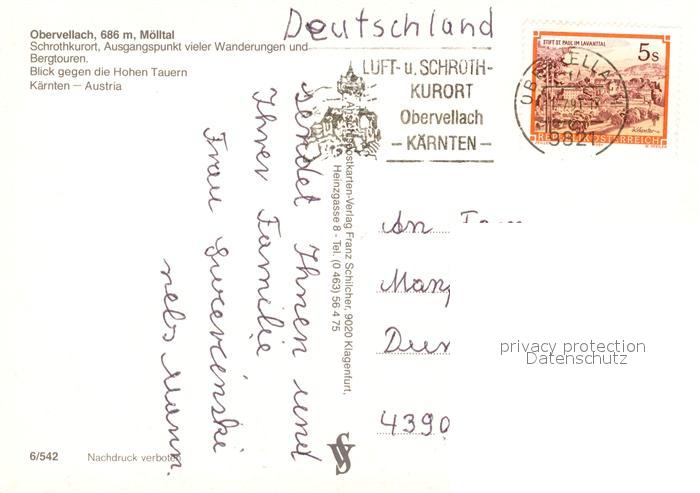 Obervellach, 686 m, Mölltal
Schrothkurort, Ausgangspunkt vieler Wanderungen und
Bergtouren.
Blick gegen die Hohen Tauern
Kärnten – Austria
Deutschland
LUFT- u. SCHROTH-
KURORT
Obervellach
- KÄRNTEN -
STIFT ST. PAUL IM LAVANTTAL
5s
REPUBLIK ÖSTERREICH
OBERVELLACH
9821
sendet Ihnen und
Ihrer Familie
Frau
nebs Mann.
Postkarten-Verlag Franz Schilcher, 9020 Klagenfurt,
Heinzgasse 8 - Tel. (0 463) 56 4 75
An
4390
privacy protection
Datenschutz
6/542
Nachdruck verboten